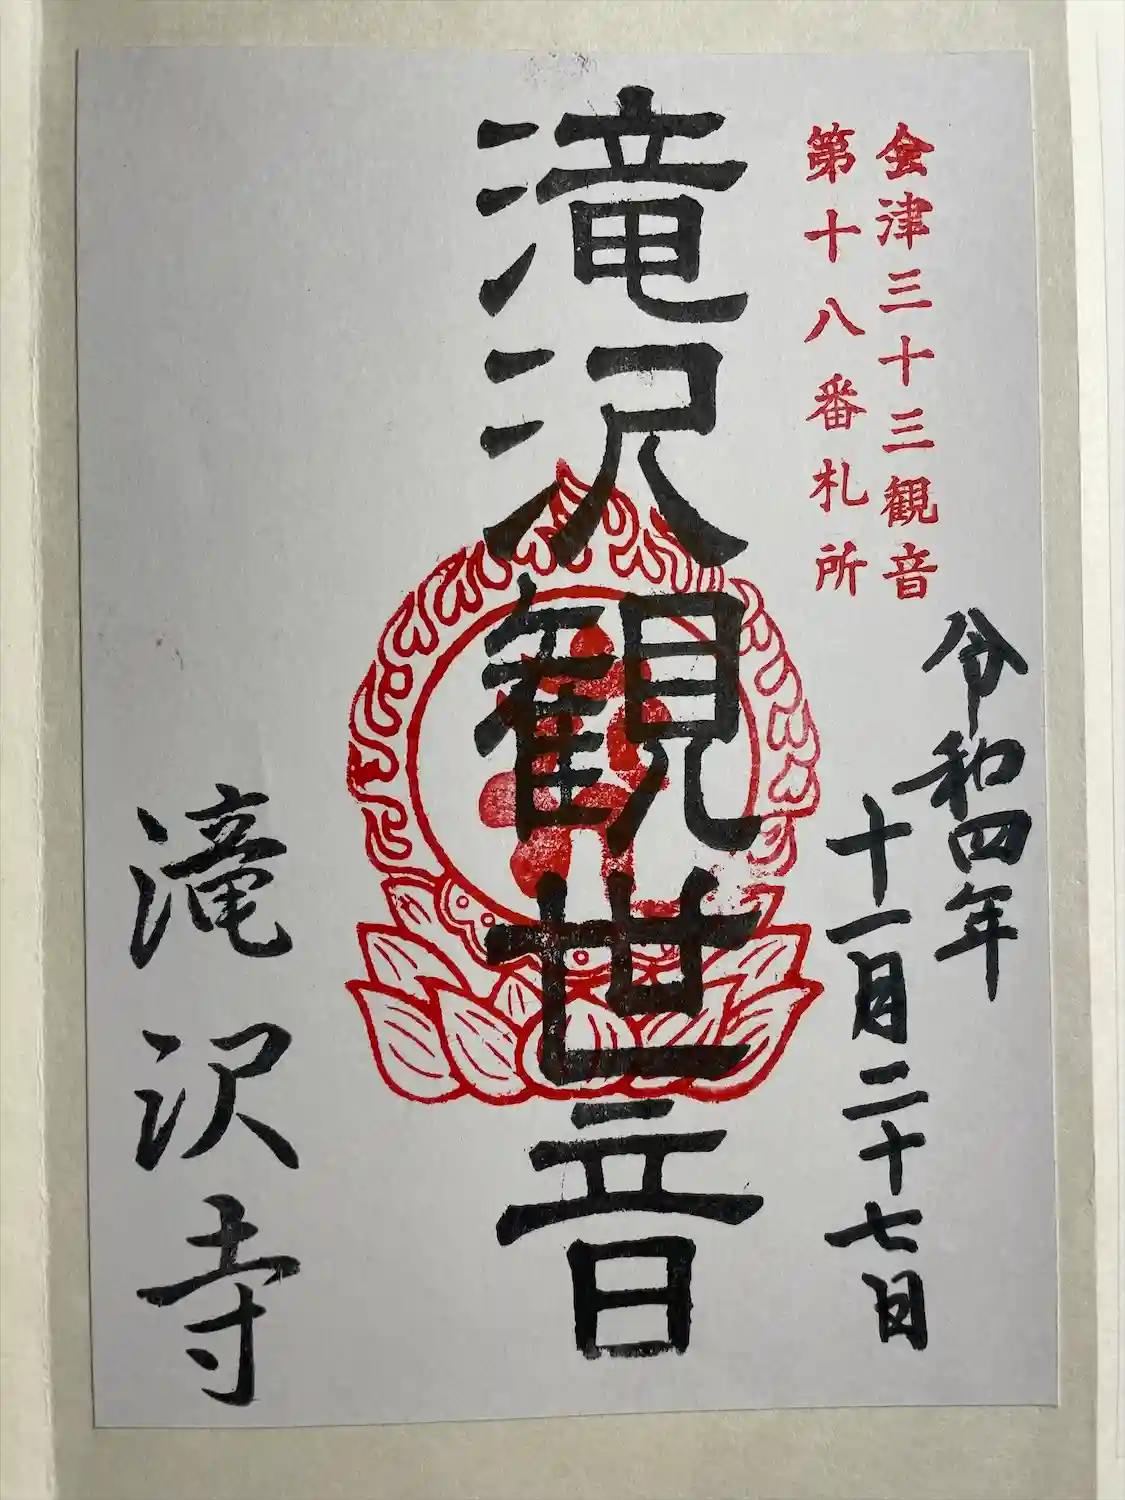 会津三十三観音
第十八番札所
令和四年
十一月二十七日
滝沢観世音
滝沢寺